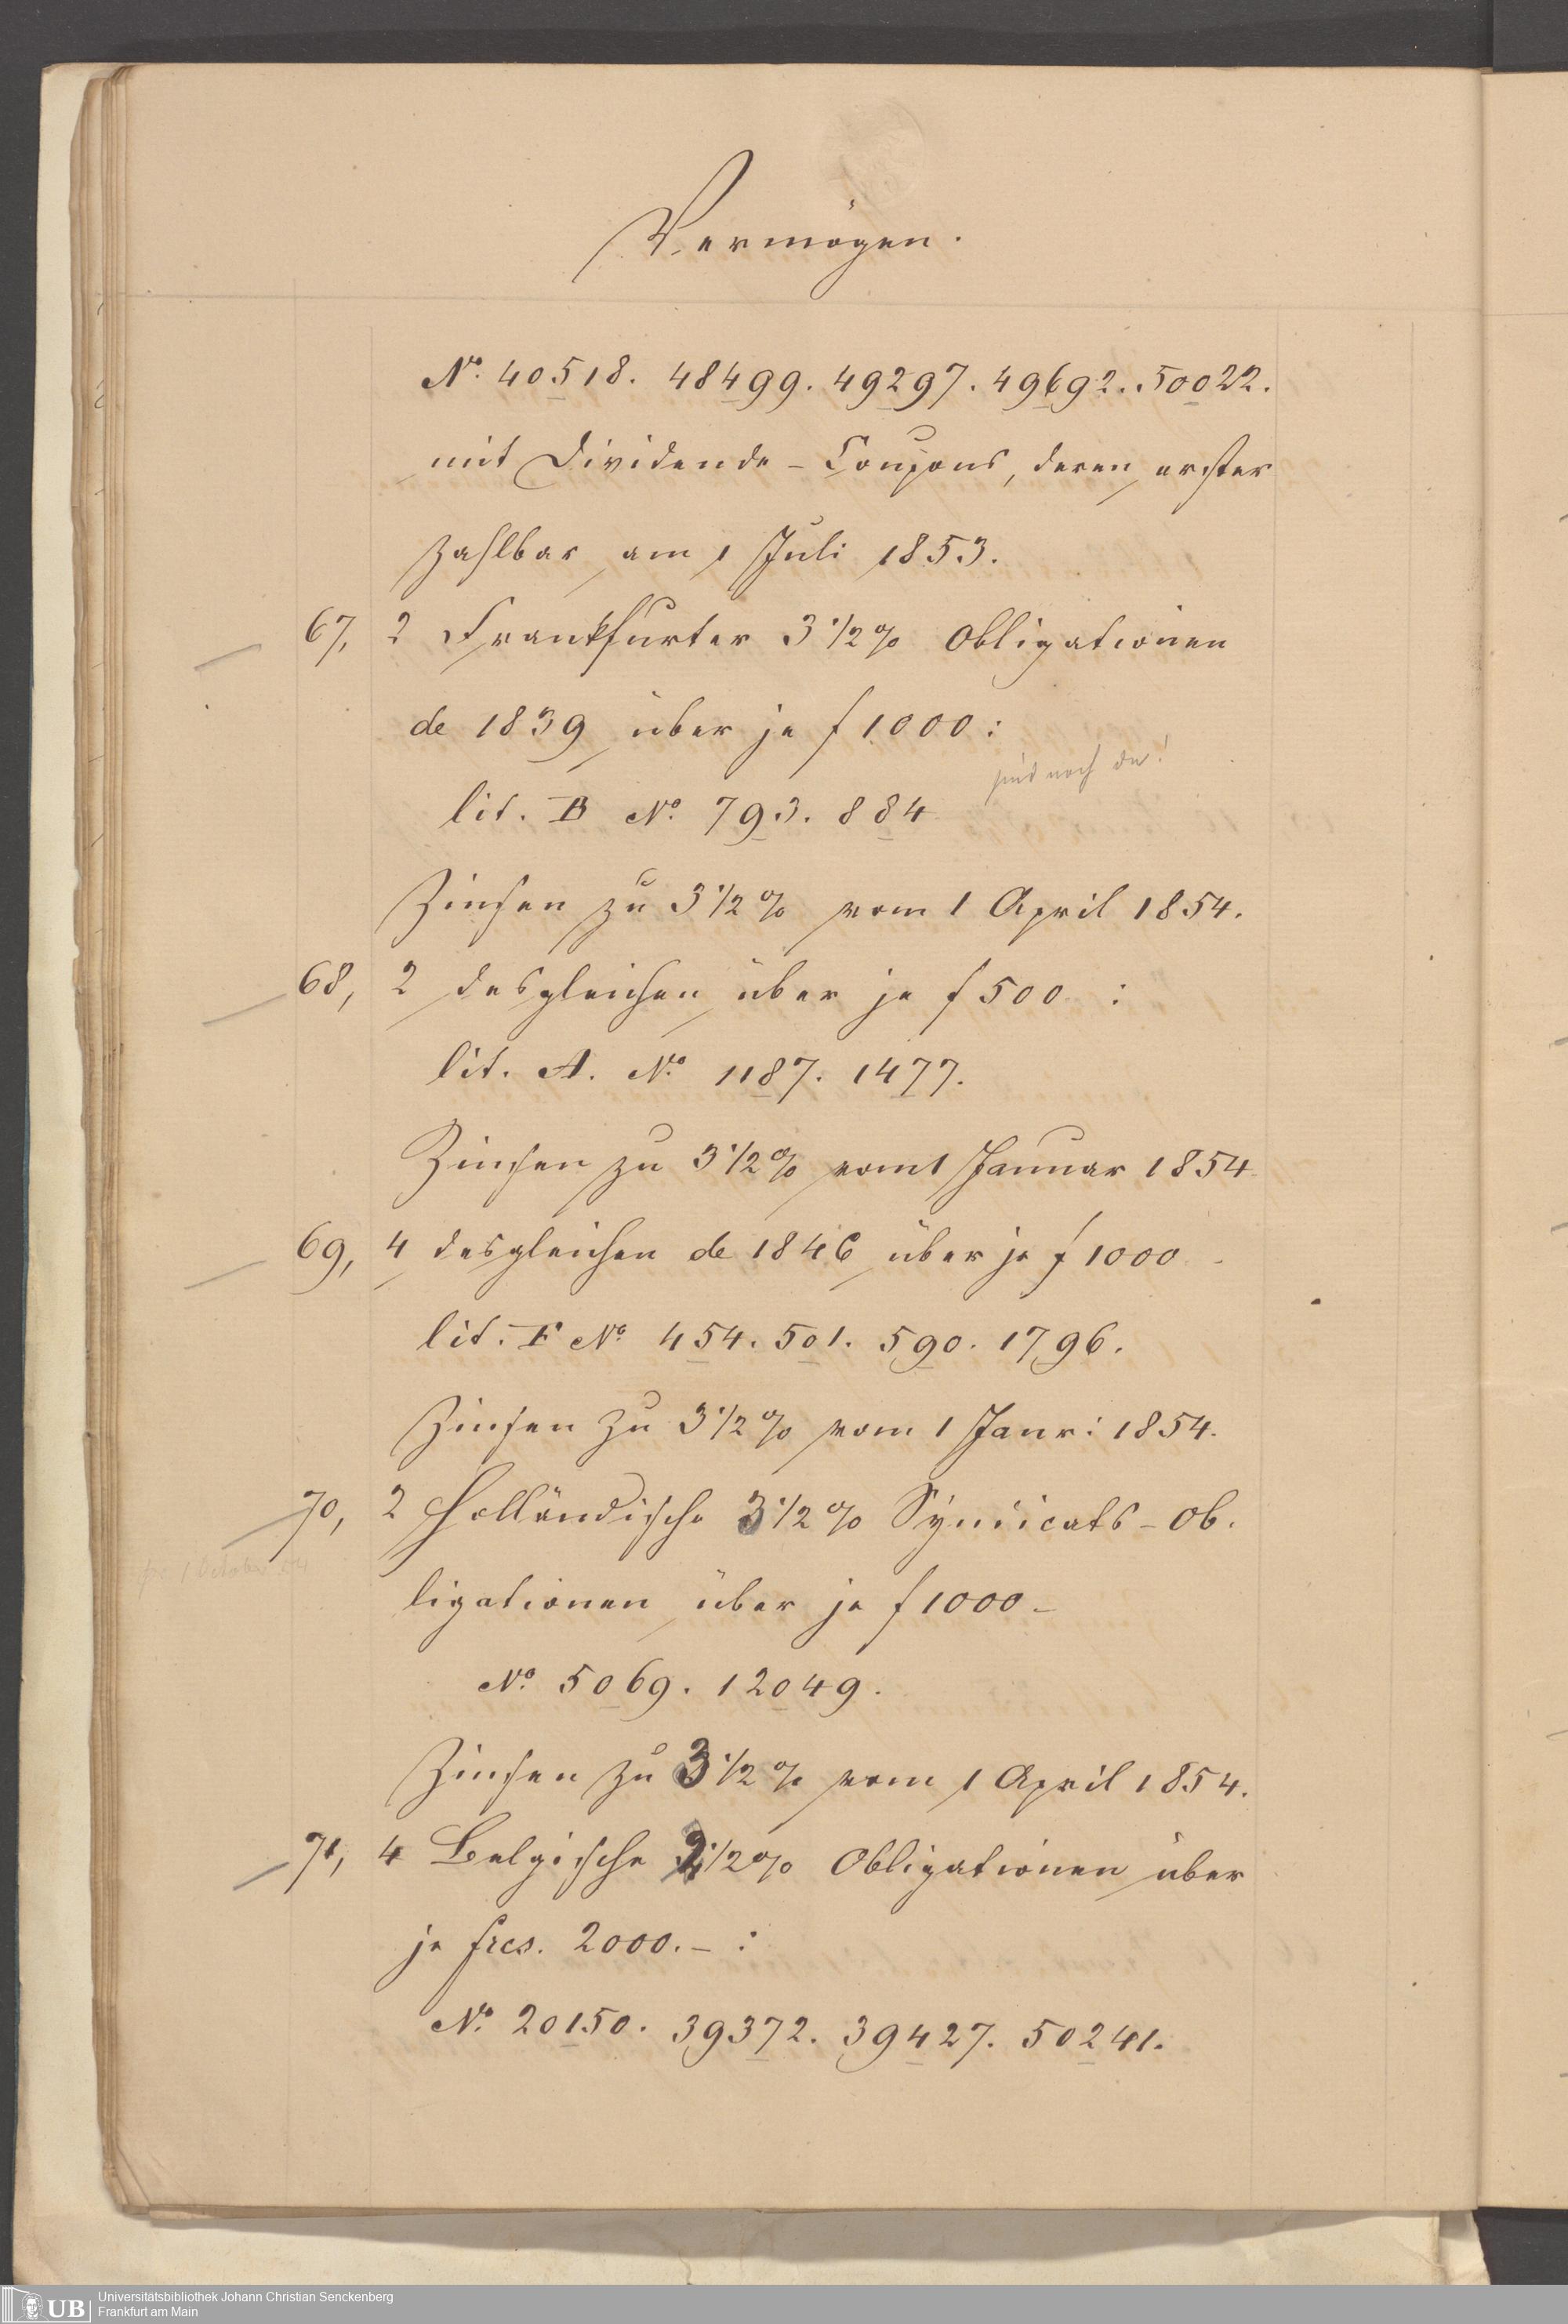 Vermögen.
No. 40518. 48499. 49297. 49692. 50022.
mit Dividende-Coupons, deren erster
zahlbar am 1 Juli 1853.
67, 2 Frankfurter 3 1/2 % Obligationen
de 1839 über je f 1000 :
sind noch da!
lit. B No. 793. 884
Zinsen zu 3 1/2 % vom 1 April 1854.
68, 2 desgleichen über je f 500 :
lit. A. No. 1187. 1477.
Zinsen zu 3 1/2 % vom 1 Januar 1854
69, 4 desgleichen de 1846 über je f 1000 -
lit. F No. 454. 501. 590. 1796.
Zinsen zu 3 1/2 % vom 1 Janr: 1854.
70, 2 Holländische 3 1/2 % Syndicats-Ob.
1 October 54
ligationen über je f 1000 -
No. 5069. 12049.
Zinsen zu 3 1/2 % vom 1 April 1854.
71, 4 Belgische 1/2 % Obligationen über
je frcs. 2000. - :
No. 20150. 39372. 39427. 50241.
UB Universitätsbibliothek Johann Christian Senckenberg
Frankfurt am Main